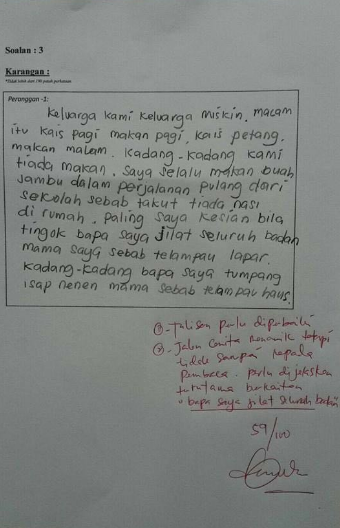 Soalan : 3
Karangan :
*Tidak lebih dari 100 patah perkataan
Perenggan -1:
Keluarga kami keluarga miskin, macam
itu kais pagi makan pagi, kais petang.
makan malam. Kadang-kadang kami
tiada makan. Saya selalu makan buah
jambu dalam perjalanan pulang dari
sekolah sebab takut tiada nasi
di rumah. Paling saya kesian bila
tingok bapa saya jilat seluruh badan
mama saya sebab telampau lapar.
Kadang-kadang bapa saya tumpang
isap nenen mama sebab telampau haus.
- Tulisan perlu diperbaiki
- Jalan cerita menarik tetapi
tidak sampai kepada
pembaca. perlu dijelaskan
terutama berkaitan
" bapa saya jilat seluruh badan
59/100